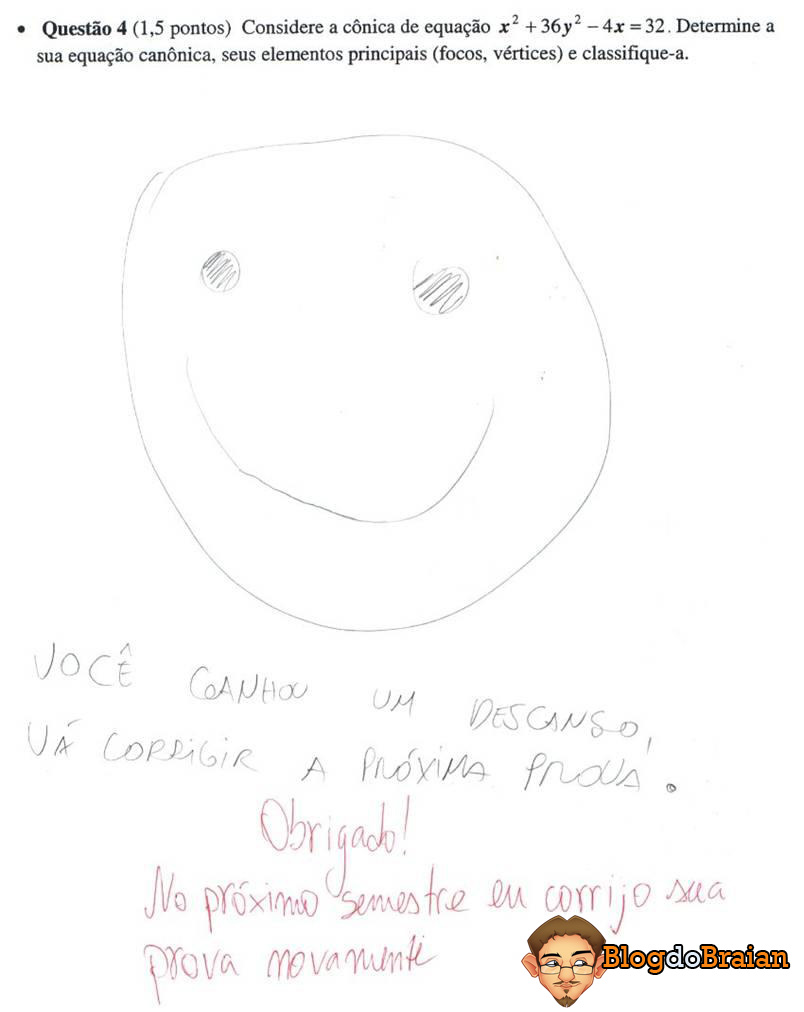 • Questão 4 (1,5 pontos) Considere a cônica de equação x² + 36y² − 4x = 32. Determine a
sua equação canônica, seus elementos principais (focos, vértices) e classifique-a.
VOCÊ GANHOU UM DESCANSO,
VÁ CORRIGIR A PRÓXIMA PROVA.
Obrigado!
No próximo semestre eu corrijo sua
prova novamente
BlogdoBraian